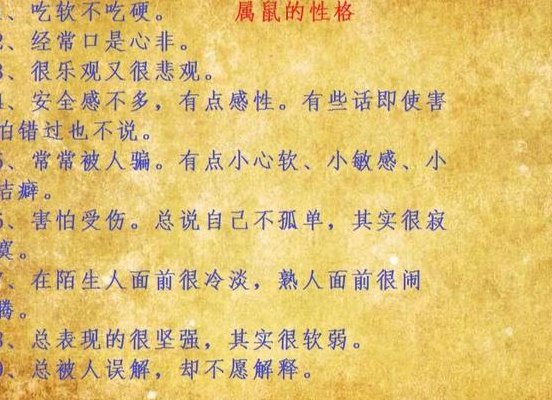 属鼠的性格
1、吃软不吃硬。
2、经常口是心非。
3、很乐观又很悲观。
4、安全感不多，有点感性。有些话即使害
怕错过也不说。
5、常常被人骗。有点小心软、小敏感、小
洁癖。
6、害怕受伤。总说自己不孤单，其实很寂
寞。
7、在陌生人面前很冷淡，熟人面前很闹
腾。
8、总表现的很坚强，其实很软弱。
9、总被人误解，却不愿解释。